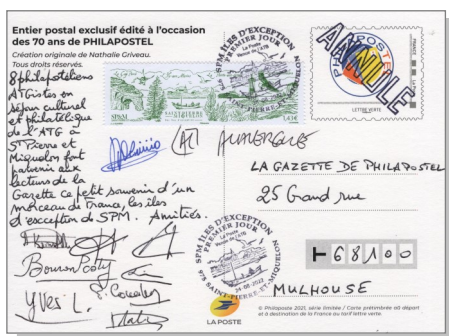 Entier postal exclusif édité à l'occasion
des 70 ans de PHILAPOSTEL
Création originale de Nathalie Griveau.
Tous droits réservés.
8 philapostéliens
ATGistes en
séjour culturel
et philatélique
de l'ATG à
St Pierre et
Miquelon font
parvenir aux
lecteurs de la
Gazette ce petit souvenir d'un
morceau de France, les îles
d'exception de SPM. Amitiés.
SPM ILES D'EXCEPTION
PREMIER JOUR
La Poste
Venue de l'ATG
975 SAINT-PIERRE-ET-MIQUELON
SPM
1,43€
PHILAPOSTEL
ANNULÉ
FRANCE
LETTRE VERTE
AUVERGNE
LA GAZETTE DE PHILAPOSTEL
25 Grand rue
T 68100
MULHOUSE
SPM ILES D'EXCEPTION
PREMIER JOUR
La Poste
Venue de l'ATG
24-08-2022
975 SAINT-PIERRE-ET-MIQUELON
Yves L.
LA POSTE
© Philaposte 2021, série limitée / Carte prétimbrée au départ
et à destination de la France au tarif lettre verte.